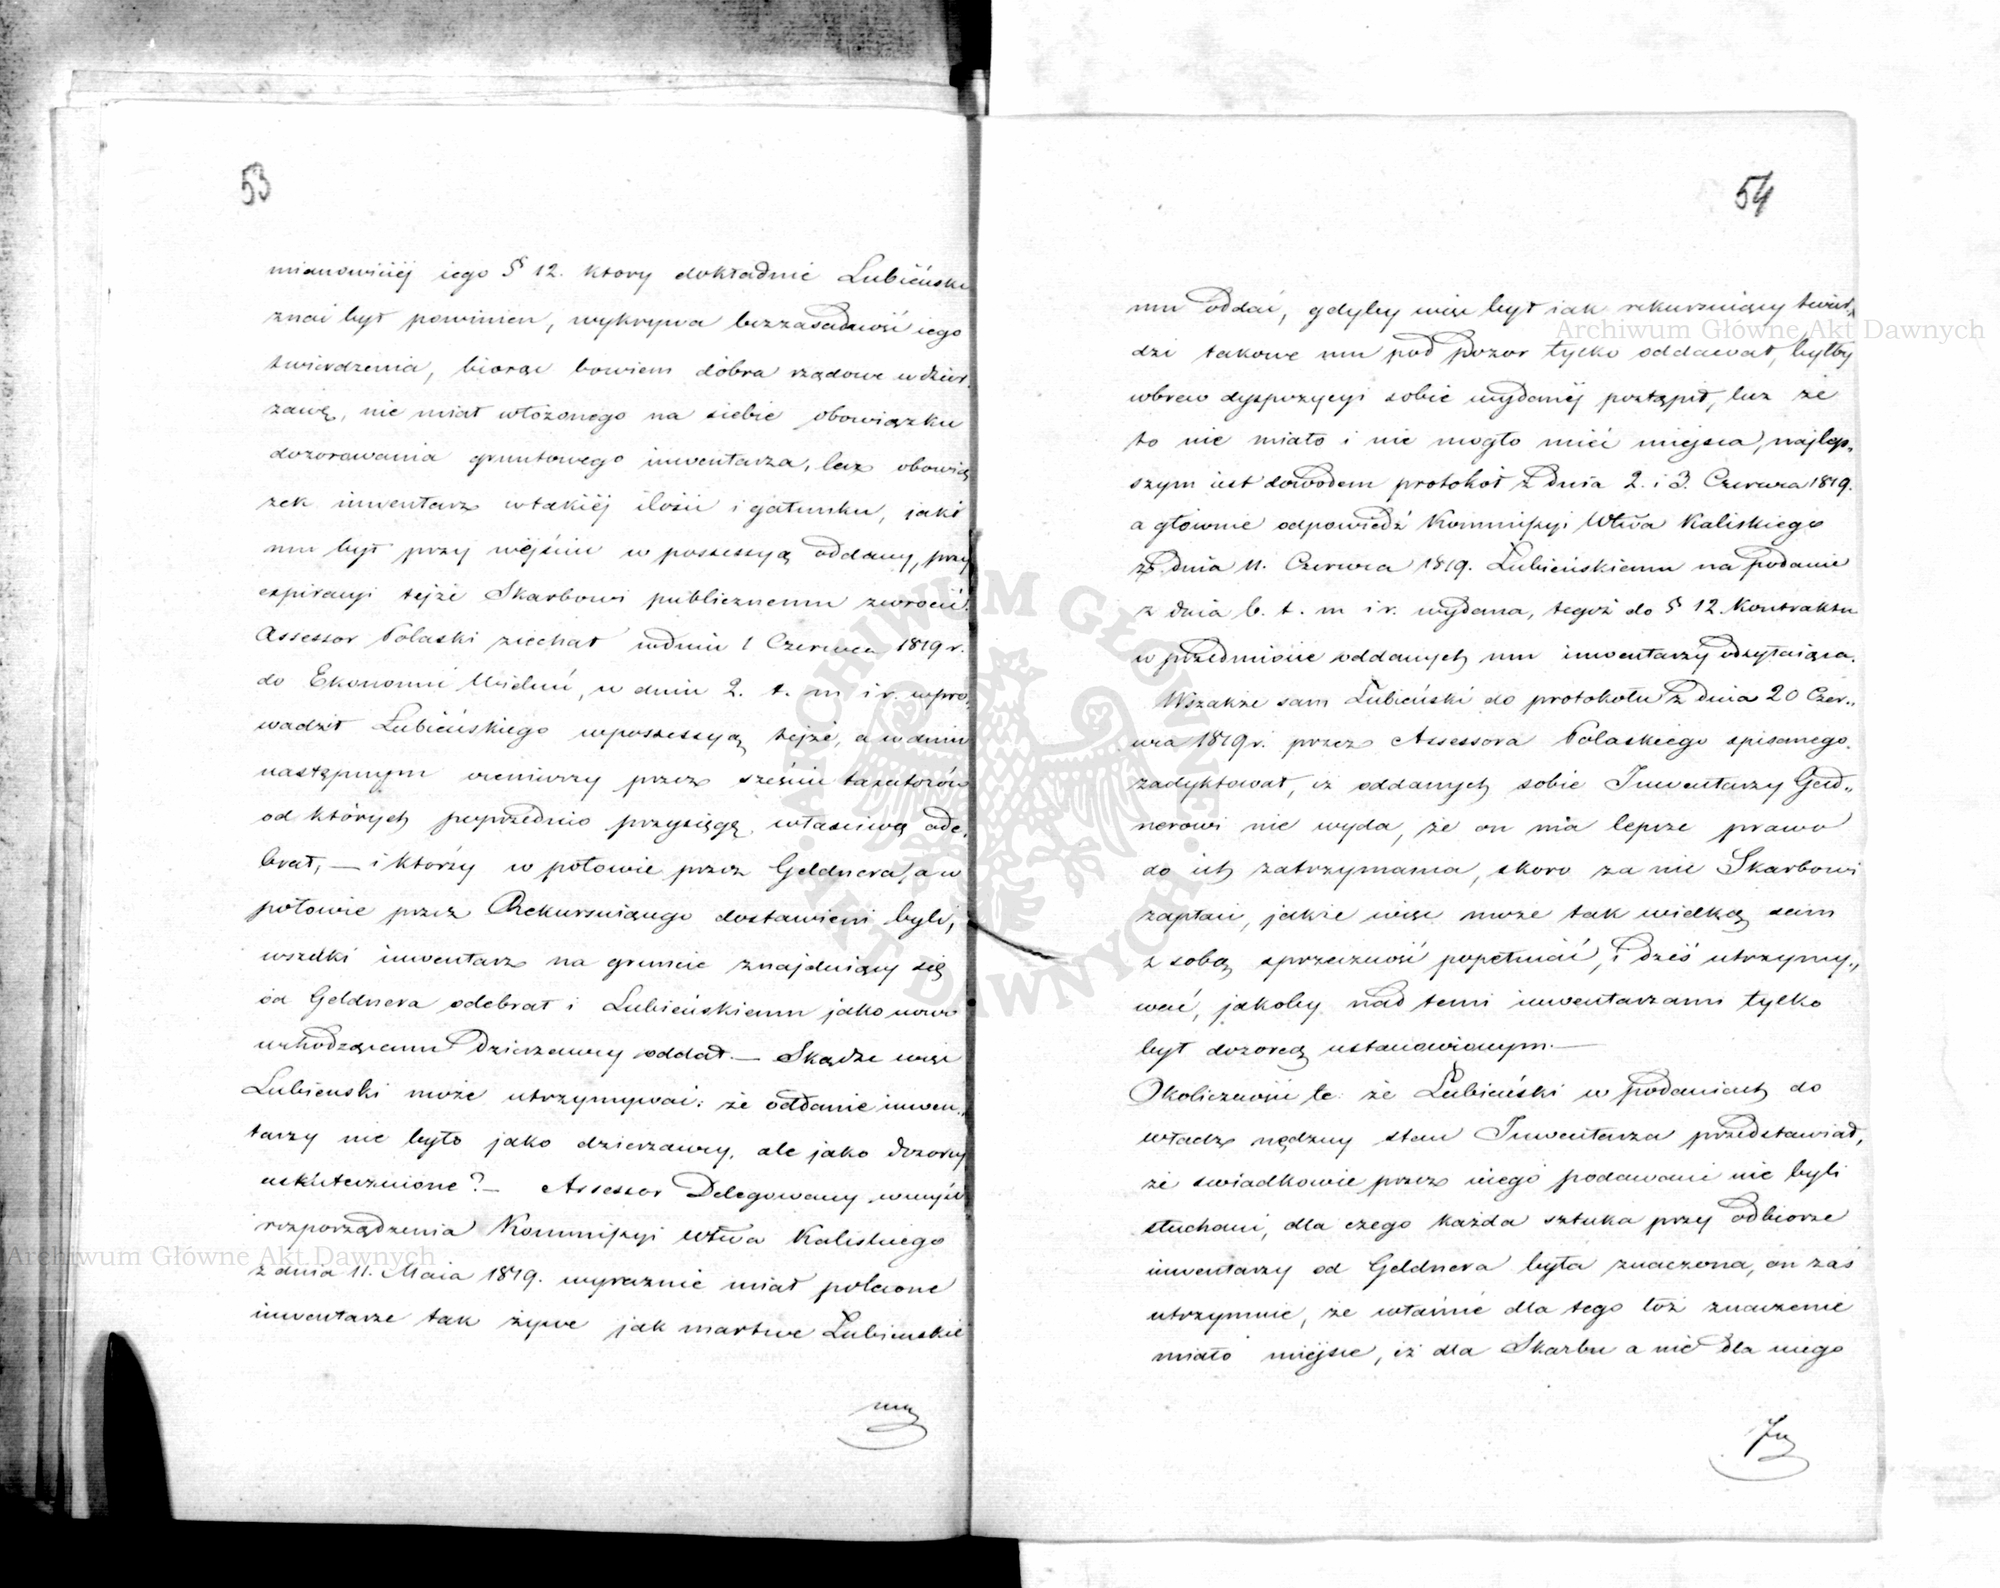 53
mianowiciéj iego § 12. ktory dokładnie Lubieński
znać był powinien, wykrywa bezzasadność iego
twierdzenia, biorąc bowiem dobra rządowe w dzier„
żawę, nie miał włożonego na siebie obowiązku
dozorowania gruntowego inwentarza, lecz obowią
zek inwentarz w takiéj ilości i gatunku, jaki
mu był przy wejściu w possessyą oddany, przy
expiracyi tejże Skarbowi publicznemu zwrócić.
Assessor Polaski ziechał w dniu 1 Czerwca 1819 r.
do Ekonomii Wieluń, w dniu 2. t. m. i r. wpro„
wadził Lubieńskiego w possessyą tejże, a w dniu
następnym oceniwszy przez sześciu taxatorów
od których poprzednio przysięgę właściwą ode„
brał, — i którzy w połowie przez Geldnera, a w
połowie przez Rekursuiącego dostawieni byli,
wszelki inwentarz na gruncie znajduiący się
od Geldnera odebrał i Lubieńskiemu jako nowo
wchodzącemu Dzierżawcy oddał. — Skądże więc
Lubienski może utrzymywać: że oddanie inwen„
tarzy nie było jako dzierżawcy, ale jako dozorcy
uskutecznione? — Assessor Delegowany w myśl
rozporządzenia Kommissyi Wtwa Kaliskiego
z dnia 11. Maia 1819. wyraznie miał polecone
inwentarze tak żywe jak martwe Lubienskie
mu
54
mu oddać, gdyby więc był jak rekursuiący twier„
dzi takowe mu pod pozor tylko oddawał, byłby
wbrew dyspozycyi sobie wydanéj postąpił, lecz że
to nie miało i nie mogło mieć miejsca, najlep„
szym iest dowodem protokół z dnia 2. i 3. Czerwca 1819.
a głównie odpowiedź Kommissyi Wtwa Kaliskiego
z dnia 11. Czerwca 1819. Lubieńskiemu na podanie
z dnia 6. t. m. i r. wydana, tegoż do § 12. Kontraktu
w przedmiocie oddanych mu inwentarzy odsyłaiąca.
Wszakże sam Lubieński do protokołu z dnia 20 Czer„
wca 1819 r. przez Assessora Polaskiego spisanego
zadyktował, iż oddanych sobie Inwentarzy Geld„
nerowi nie wyda, że on ma lepsze prawo
do ich zatrzymania, skoro za nie Skarbowi
zapłaci, jakże więc może tak wielką sam
z sobą sprzeczność popełniać, i dziś utrzymy„
wać, jakoby nad temi inwentarzami tylko
był dozorcą ustanowionym. —
Okoliczności te: że Lubieński w podaniach do
władz nędzny stan Inwentarza przedstawiał,
że swiadkowie przez niego podawani nie byli
słuchani, dla czego każda sztuka przy odbiorze
inwentarzy od Geldnera była znaczona, on zaś
utrzymuie, że właśnie dla tego toż znaczenie
miało miejsce, iż dla Skarbu a nie dla niego
Archiwum Główne Akt Dawnych
Archiwum Główne Akt Dawnych
ARCHIWUM GŁÓWNE AKT DAWNYCH